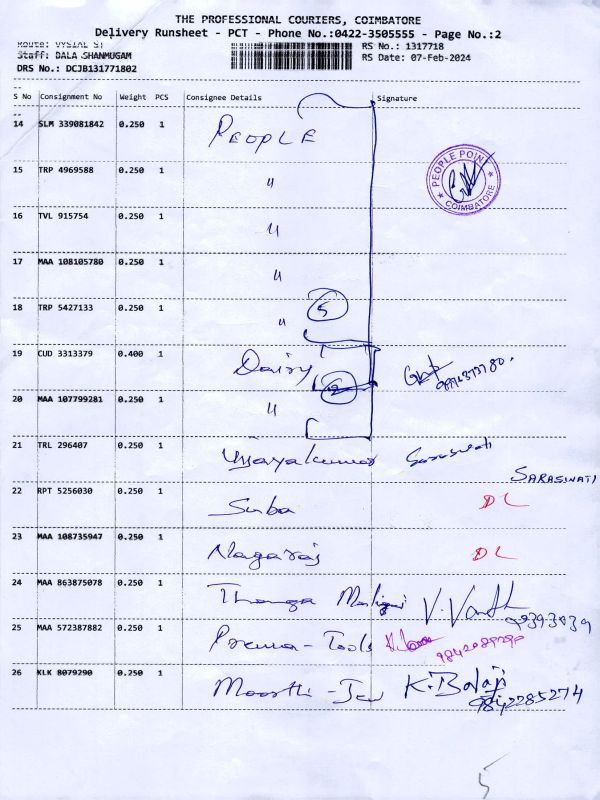 THE PROFESSIONAL COURIERS, COIMBATORE
Delivery Runsheet - PCT - Phone No.:0422-3505555 - Page No.:2
Route: VYSIAL ST
RS No.: 1317718
Staff: DALA SHANMUGAM
RS Date: 07-Feb-2024
DRS No.: DCJB131771802
S No Consignment No Weight PCS Consignee Details Signature
14 SLM 339081842 0.250 1 PEOPLE
15 TRP 4969588 0.250 1 "
PEOPLE POINT
COIMBATORE
16 TVL 915754 0.250 1 "
17 MAA 108105780 0.250 1 "
18 TRP 5427133 0.250 1 " 5
19 CUD 3313379 0.400 1 Dairy
20 MAA 107799281 0.250 1 " 2
21 TRL 296407 0.250 1 Vijayakumar Saraswati
SARASWATI
22 RPT 5256030 0.250 1 Suba DL
23 MAA 108735947 0.250 1 Nagaraj DL
24 MAA 863875078 0.250 1 Thanga
25 MAA 572387882 0.250 1 Prema - Tools
26 KLK 8079290 0.250 1 Moorthi - K. Balaji
9842285274
5